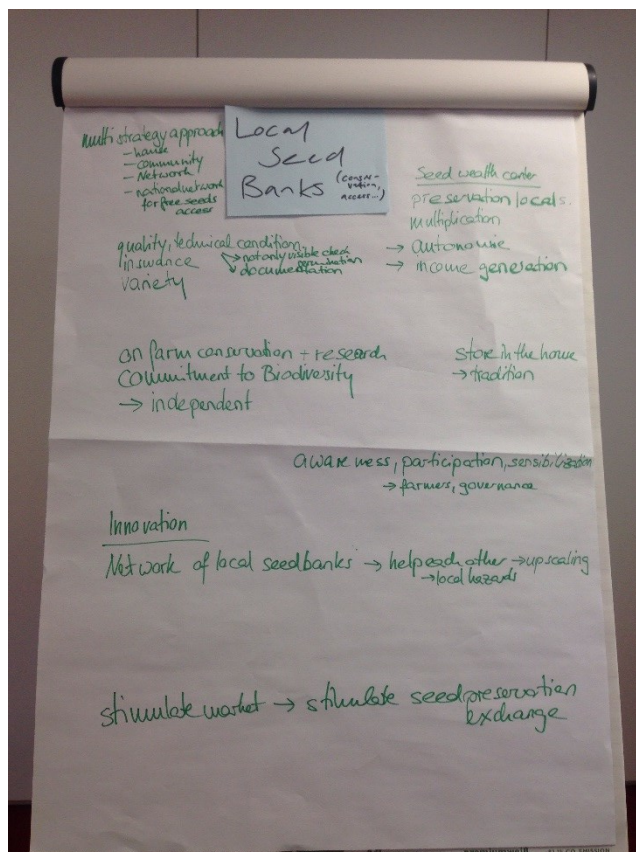 Local
Seed
Banks (conser-
vation,
access...)
multi strategy approach
- house
- community
- Network
- national network
for free seeds
access
Seed wealth center
preservation locals.
multiplication
→ autonomie
→ income generation
quality, technical condition,
insurance
variety
→ not only visible check
germination
→ documentation
on farm conservation + research
Commitment to Biodiversity
→ independent
store in the house
→ tradition
awareness, participation, sensibilization
→ farmers, governance
Innovation
Network of local seedbanks → help each other → upscaling
→ local hazards
stimulate market → stimulate seed preservation
exchange